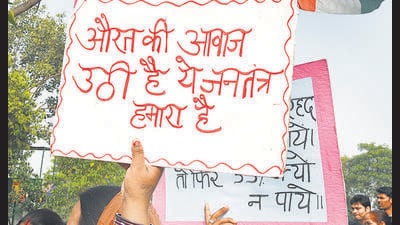 औरत की आवाज
उठी है ये जनतंत्र
हमारा है
हद
पाये।
तो फिर
क्यो
न पाये॥